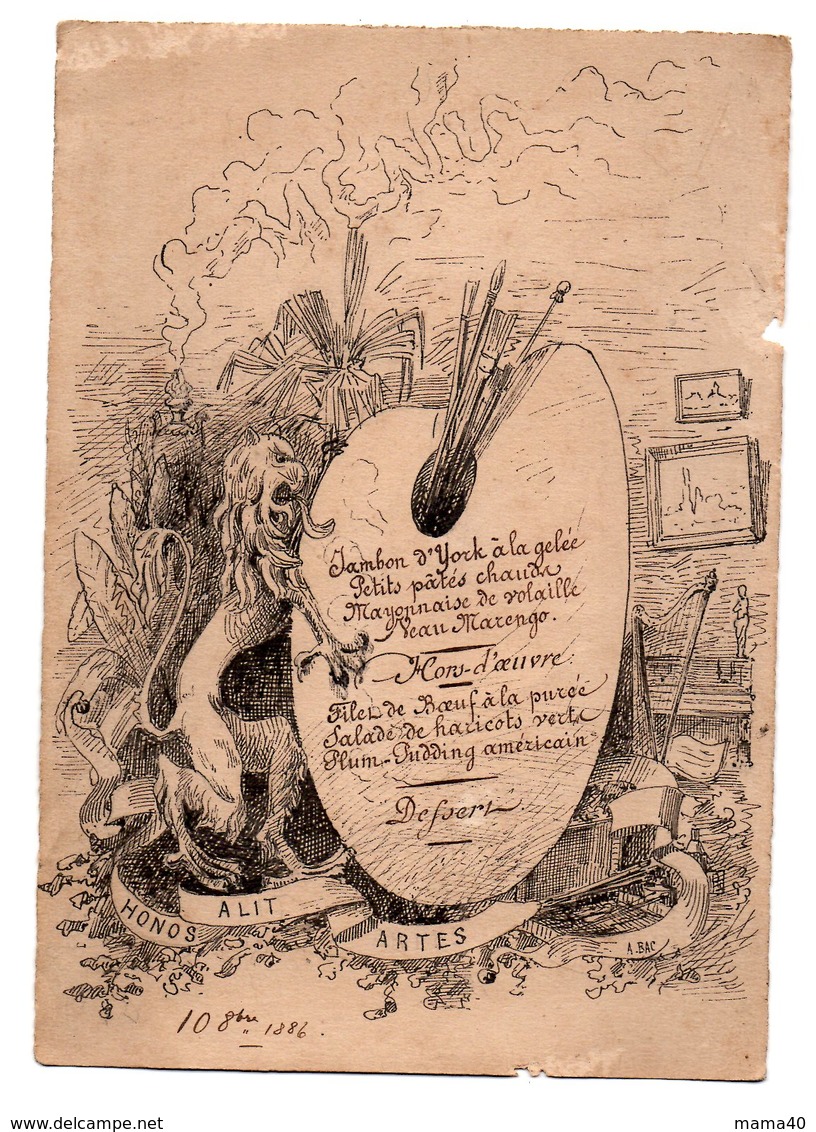 Jambon d'York à la gelée
Petits pâtés chauds
Mayonnaise de volaille
Veau Marengo.
Hors-d'œuvre.
Filet de Bœuf à la purée
Salade de haricots verts
Plum-Pudding américain
Dessert
HONOS ALIT ARTES
A. BAC
10 8bre 1886.
www.delcampe.net
mama40